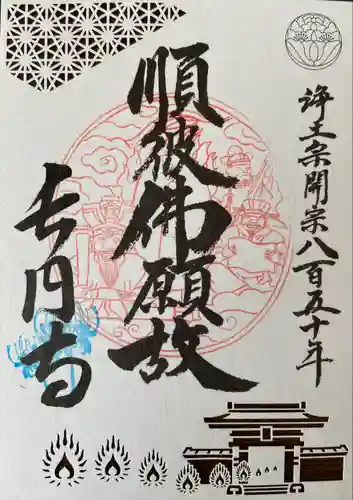 浄土宗開宗八百五十年
順彼佛願故
長円寺